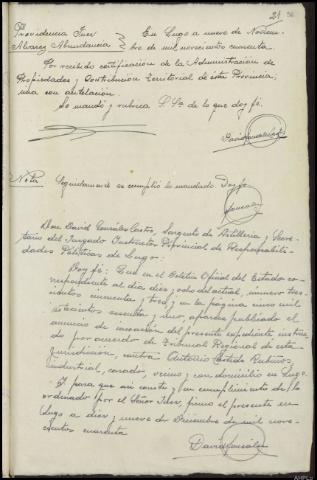 21
Providencia Juez En Lugo a nueve de Noviem-
Alvarez Abundancia bre de mil novecientos cuarenta.
Por recibido certificación de la Administración de
Propiedades y Contribución Territorial de esta Provincia,
una con antelación.
Lo mandó y rubrica S. Sª de lo que doy fé.
David González
Nota Seguidamente se cumplió lo mandado Doy fe
González
Don David González Castro, Sargento de Artillería y Secre-
tario del Juzgado Instructor Provincial de Responsabili-
dades Políticas de Lugo:
Doy fé: Que en el Boletin Oficial del Estado co-
rrespondiente al dia diez y ocho del actual, número tres-
cientos cincuenta y tres y en la página cinco mil
setecientos sesenta y uno, aparece publicado el
anuncio de incoación del presente expediente instrui-
do por acuerdo de Tribunal Regional de esta
jurisdicción, contra Antonio
industrial, casado, vecino y con domicilio en Lugo.
Y para que asi conste y en cumplimiento de lo
ordenado por el Señor Juez, firmo el presente en
Lugo a diez y nueve de Diciembre de mil nove-
cientos cuarenta
David González